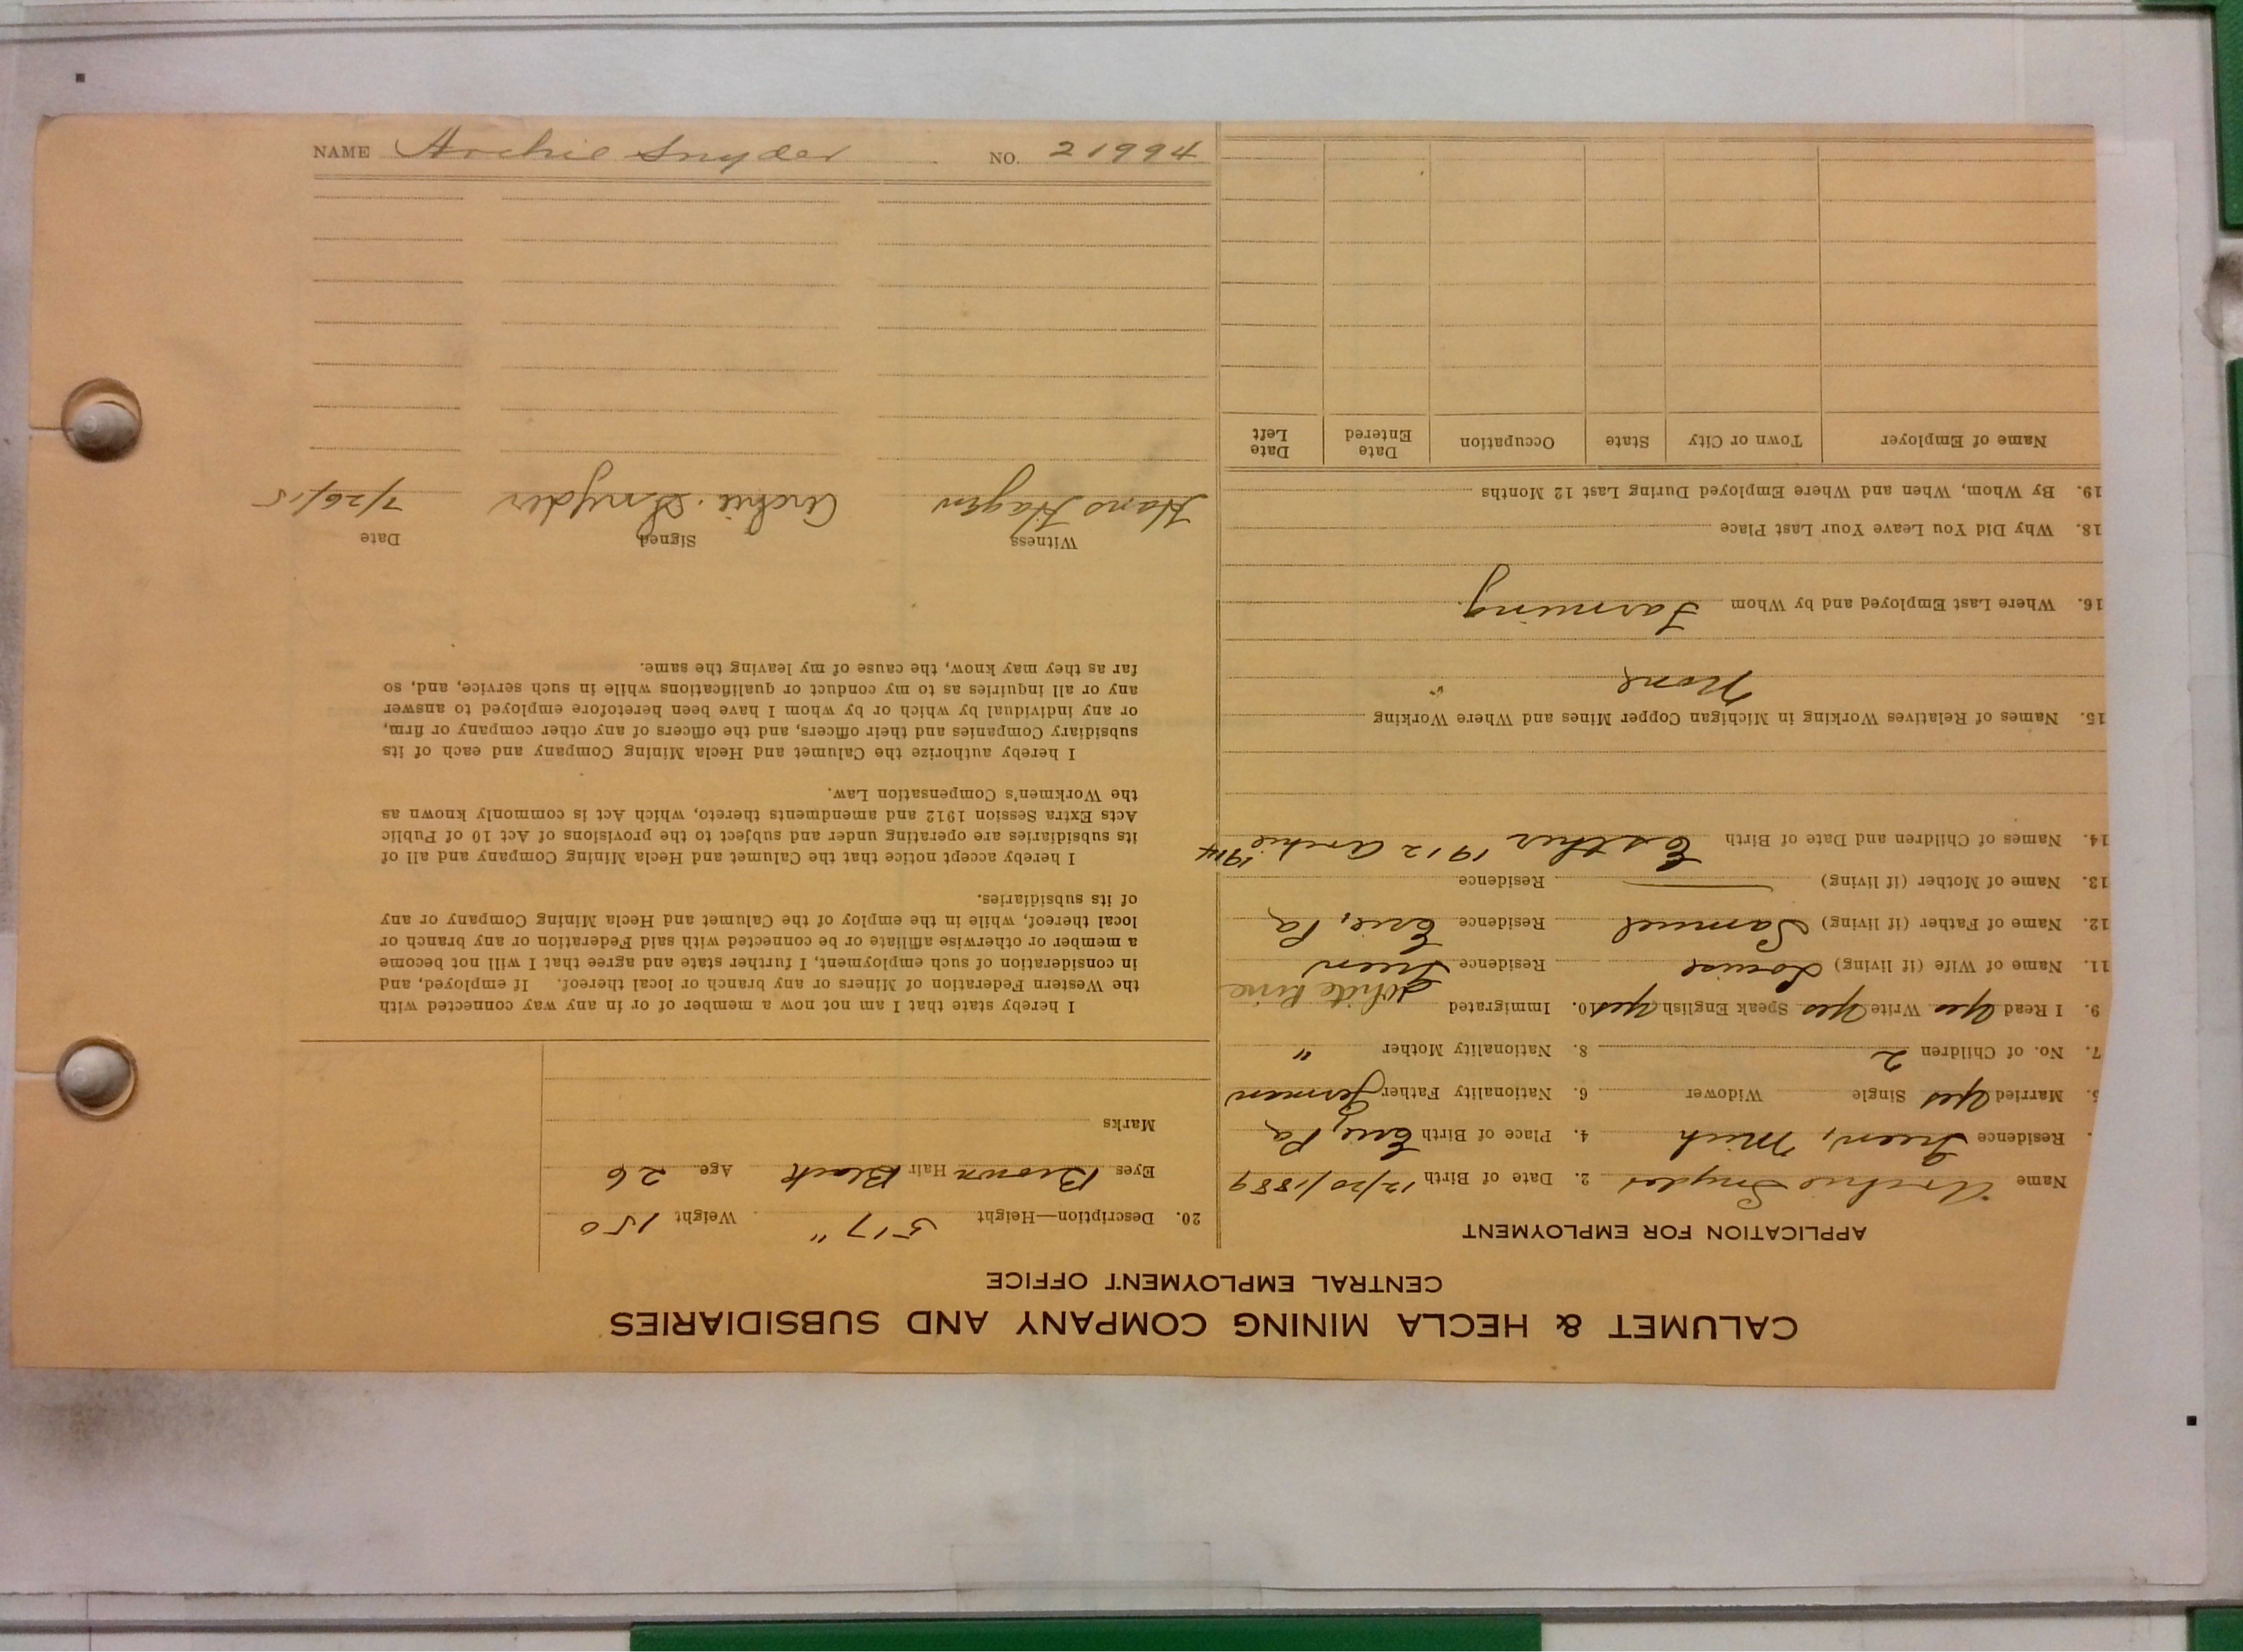 NAME Archie Snyder NO. 21994
CALUMET & HECLA MINING COMPANY AND SUBSIDIARIES
CENTRAL EMPLOYMENT OFFICE
APPLICATION FOR EMPLOYMENT
Name Archie Snyder 2. Date of Birth 12/20/1889
Residence Green, Mich 4. Place of Birth Erie, Pa
5. Married yes Single Widower 6. Nationality Father German
7. No. of Children 2 8. Nationality Mother "
9. I Read yes Write yes Speak English yes 10. Immigrated
White Pine
11. Name of Wife (if living) Louise Residence Green
12. Name of Father (if living) Samuel Residence Erie, Pa
13. Name of Mother (if living) Residence
14. Names of Children and Date of Birth Esther 1912 Archie 1914
15. Names of Relatives Working in Michigan Copper Mines and Where Working
None
16. Where Last Employed and by Whom Farming
18. Why Did You Leave Your Last Place
19. By Whom, When and Where Employed During Last 12 Months
Name of Employer Town or City State Occupation Date Entered Date Left
20. Description—Height 5'7" Weight 150
Eyes Brown Hair Black Age 26
Marks
I hereby state that I am not now a member of or in any way connected with
the Western Federation of Miners or any branch or local thereof. If employed, and
in consideration of such employment, I further state and agree that I will not become
a member or otherwise affiliate or be connected with said Federation or any branch or
local thereof, while in the employ of the Calumet and Hecla Mining Company or any
of its subsidiaries.
I hereby accept notice that the Calumet and Hecla Mining Company and all of
its subsidiaries are operating under and subject to the provisions of Act 10 of Public
Acts Extra Session 1912 and amendments thereto, which Act is commonly known as
the Workmen's Compensation Law.
I hereby authorize the Calumet and Hecla Mining Company and each of its
subsidiary Companies and their officers, and the officers of any other company or firm,
or any individual by which or by whom I have been heretofore employed to answer
any or all inquiries as to my conduct or qualifications while in such service, and, so
far as they may know, the cause of my leaving the same.
Witness Signed Date
Hans Hagen Archie Snyder 7/26/15